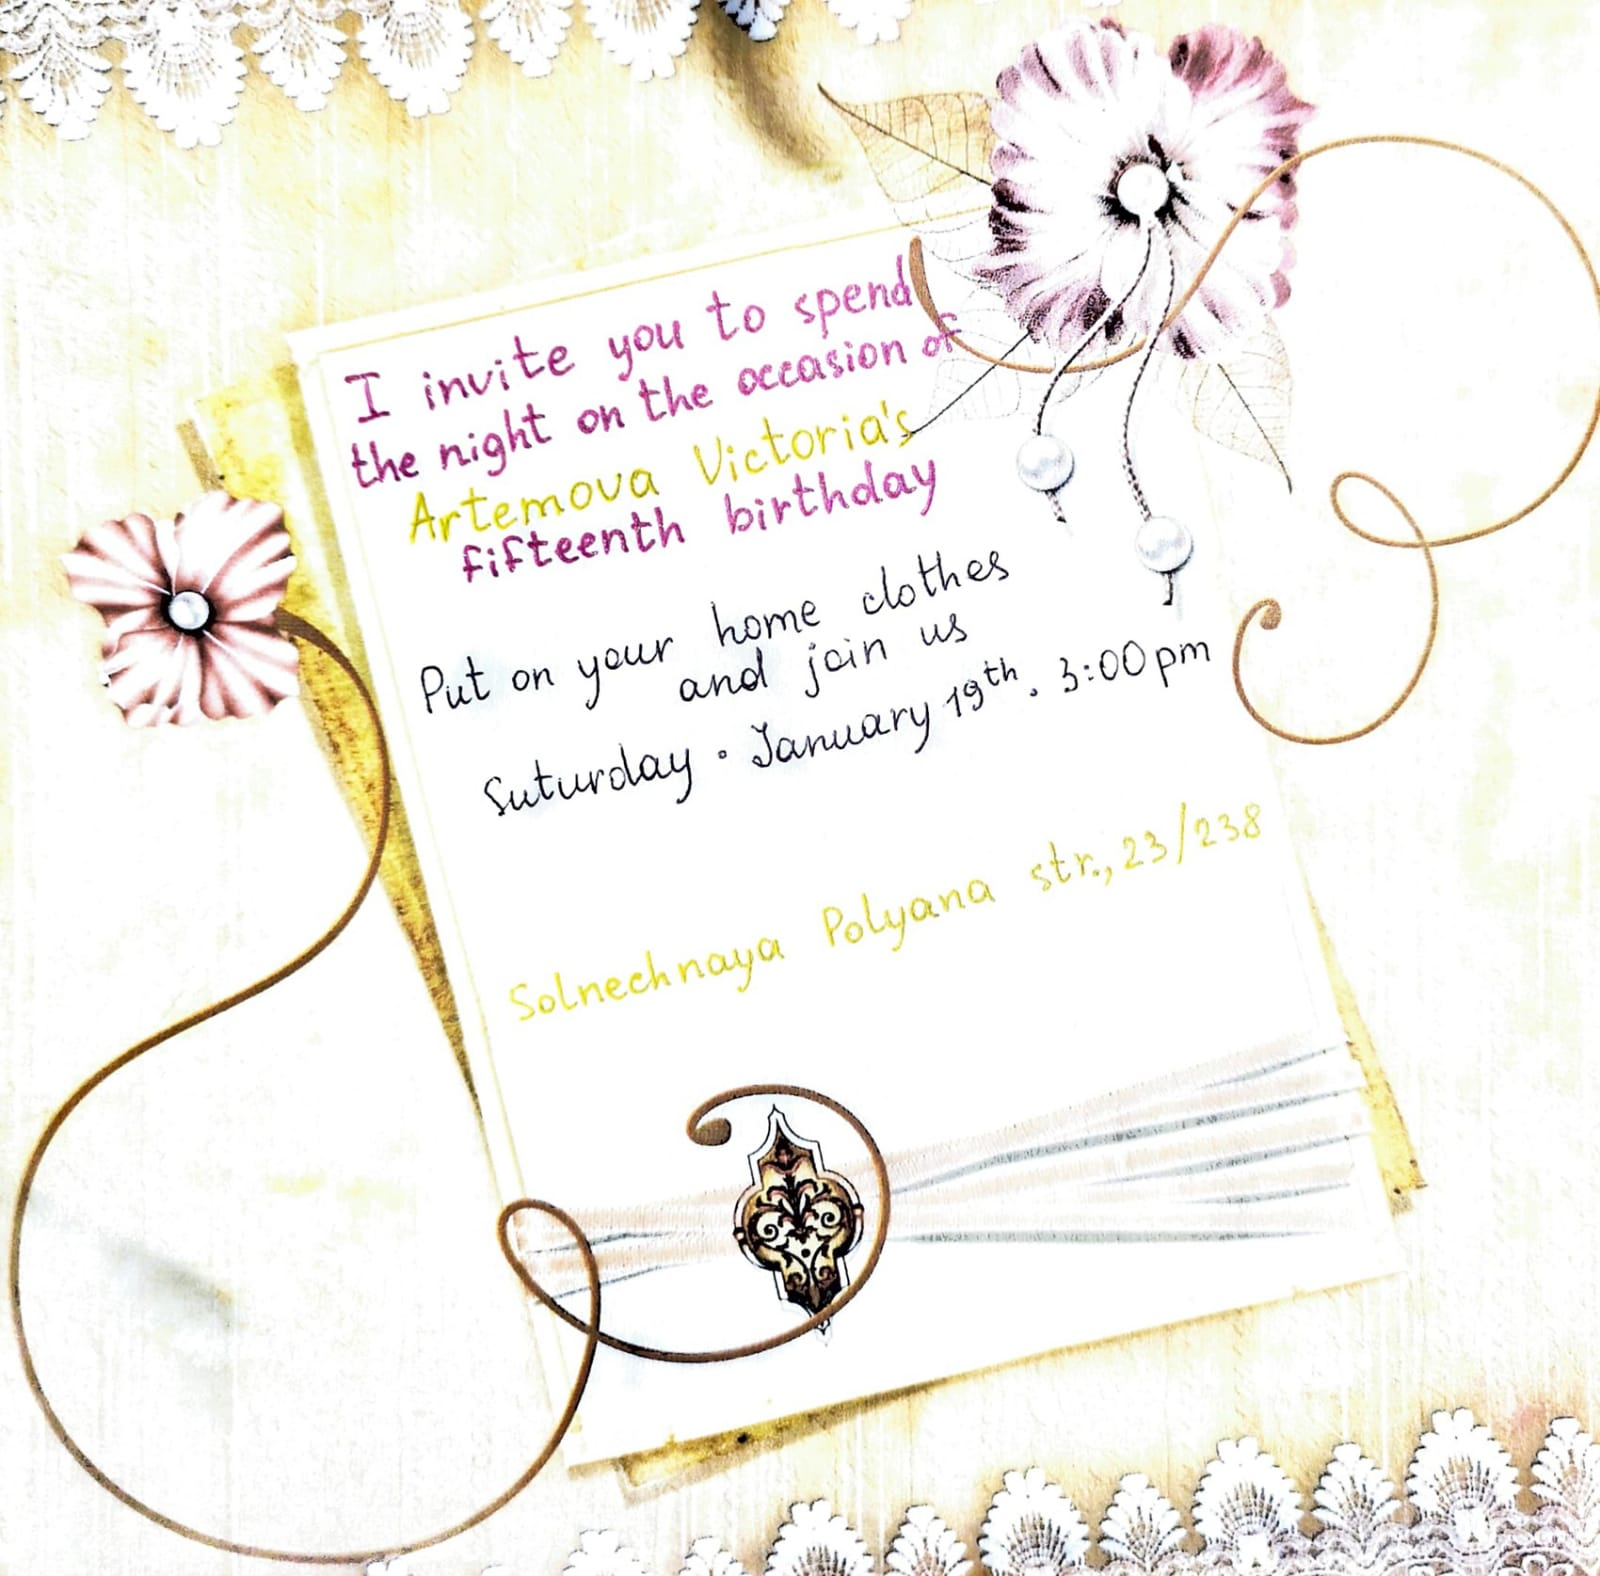 I invite you to spend
the night on the occasion of
Artemova Victoria's
fifteenth birthday
Put on your home clothes
and join us
Suturday • January 19th. 3:00pm
Solnechnaya Polyana str., 23/238